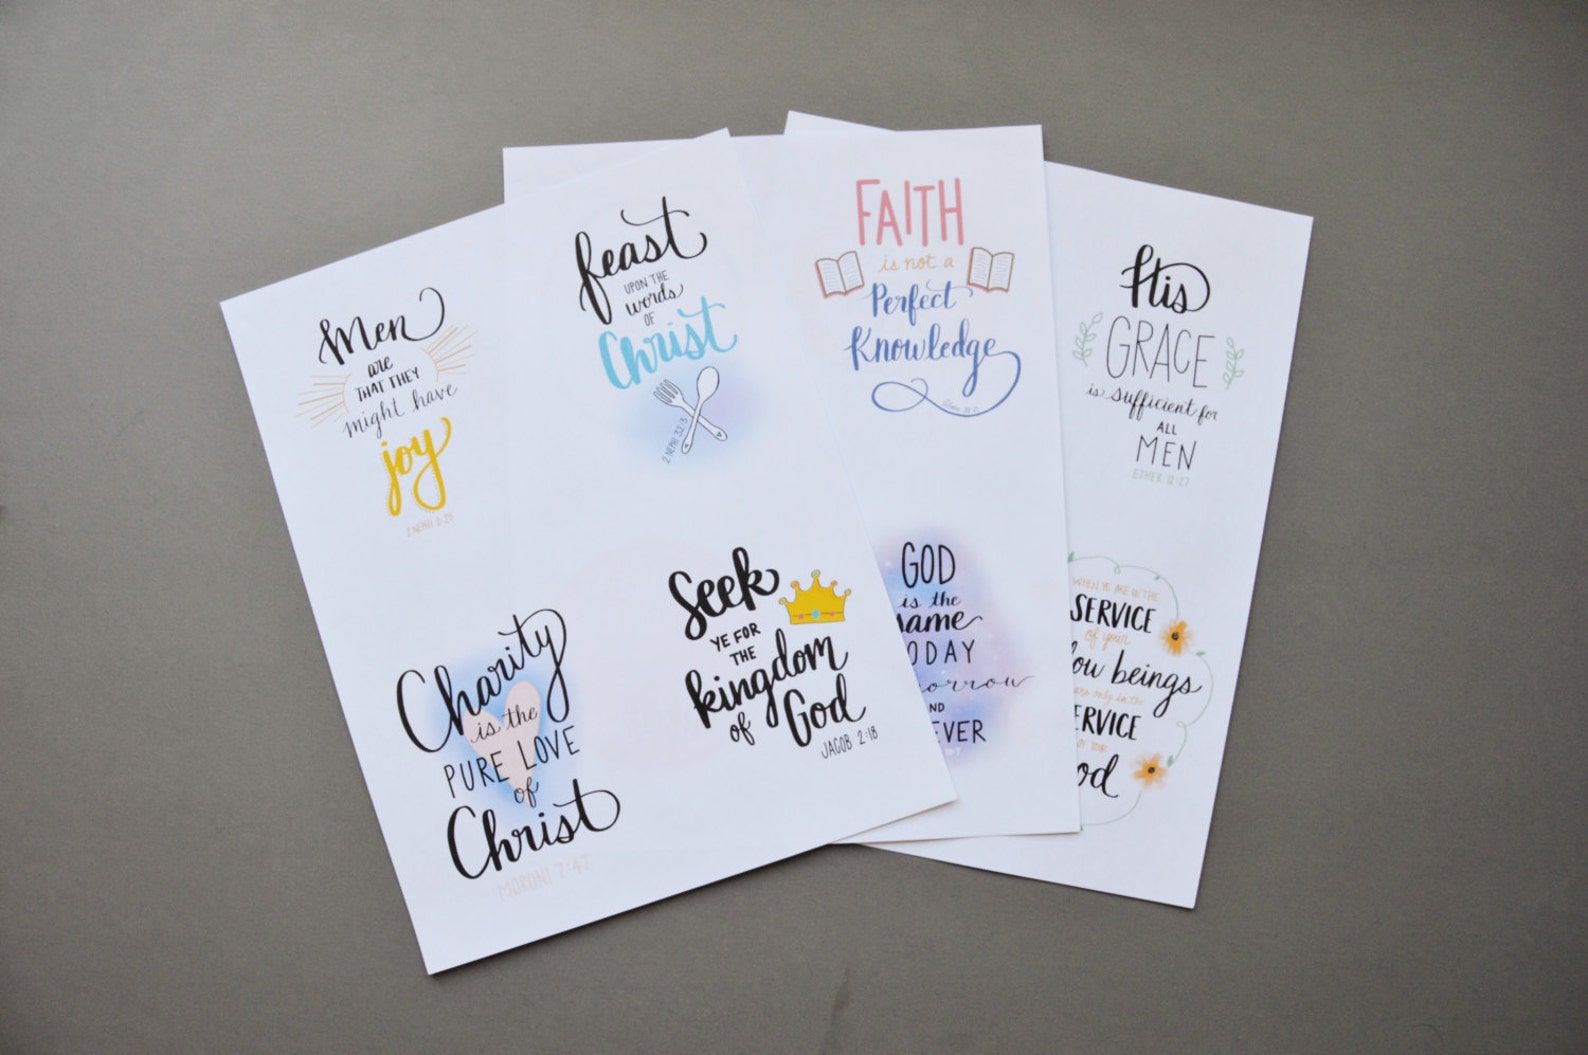 Men
are
THAT THEY
might have
joy
2 NEPHI 2:25
feast
UPON THE
words
OF
Christ
2 NEPHI 32:3
Charity
is the
PURE LOVE
of
Christ
MORONI 7:47
Seek
YE FOR
THE
kingdom
of God
JACOB 2:18
FAITH
is not a
Perfect
Knowledge
GOD
is the
same
ODAY
orrow
ND
EVER
His
GRACE
is sufficient for
ALL
MEN
ETHER 12:27
WHEN YE ARE IN THE
SERVICE
of your
low beings
are only in the
ERVICE
OF YOUR
od